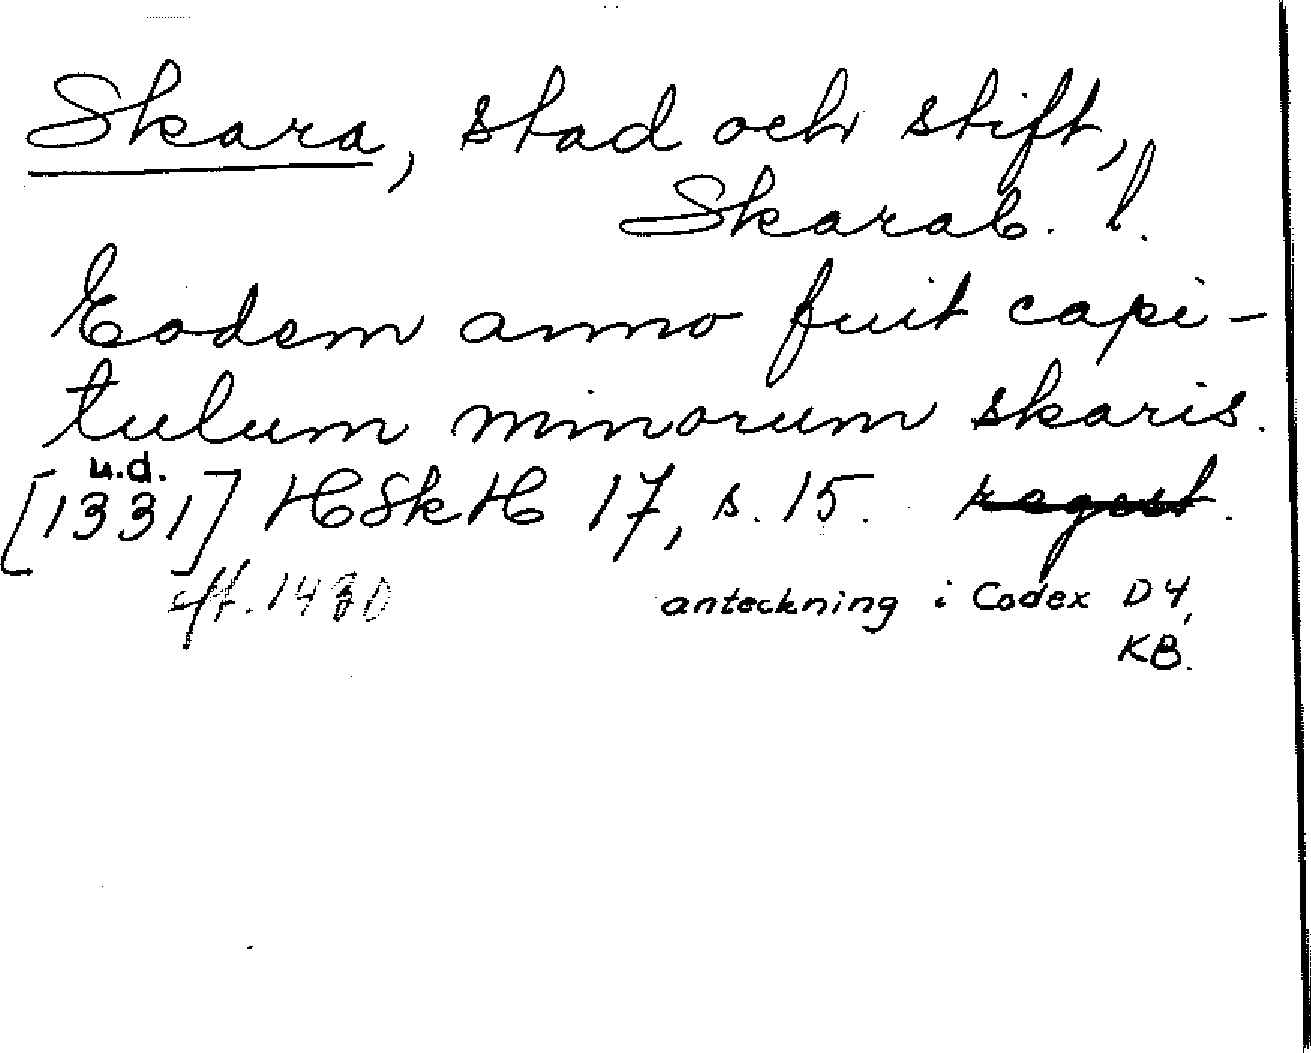 Skara, stad och stift,
Skarab. l.
Eodem anno fuit capi-
tulum minorum skaris.
u.d.
[1331] HSkH 17, s. 15. regest.
eft. 1430
anteckning i Codex D4,
KB.